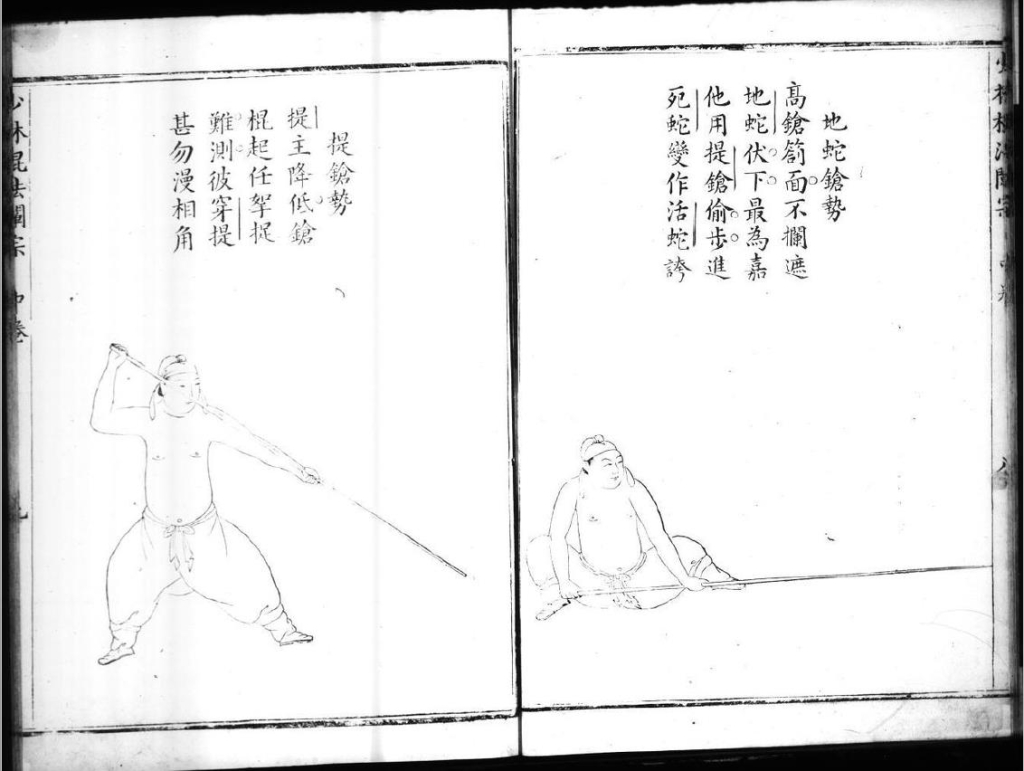 地蛇鎗勢
高鎗箚面不攔遮
地蛇伏下最為嘉
他用提鎗偷步進
死蛇變作活蛇誇
提鎗勢
提主降低鎗
棍起任拏捉
難測彼穿提
甚勿漫相角
少林棍法闡宗 中卷
九